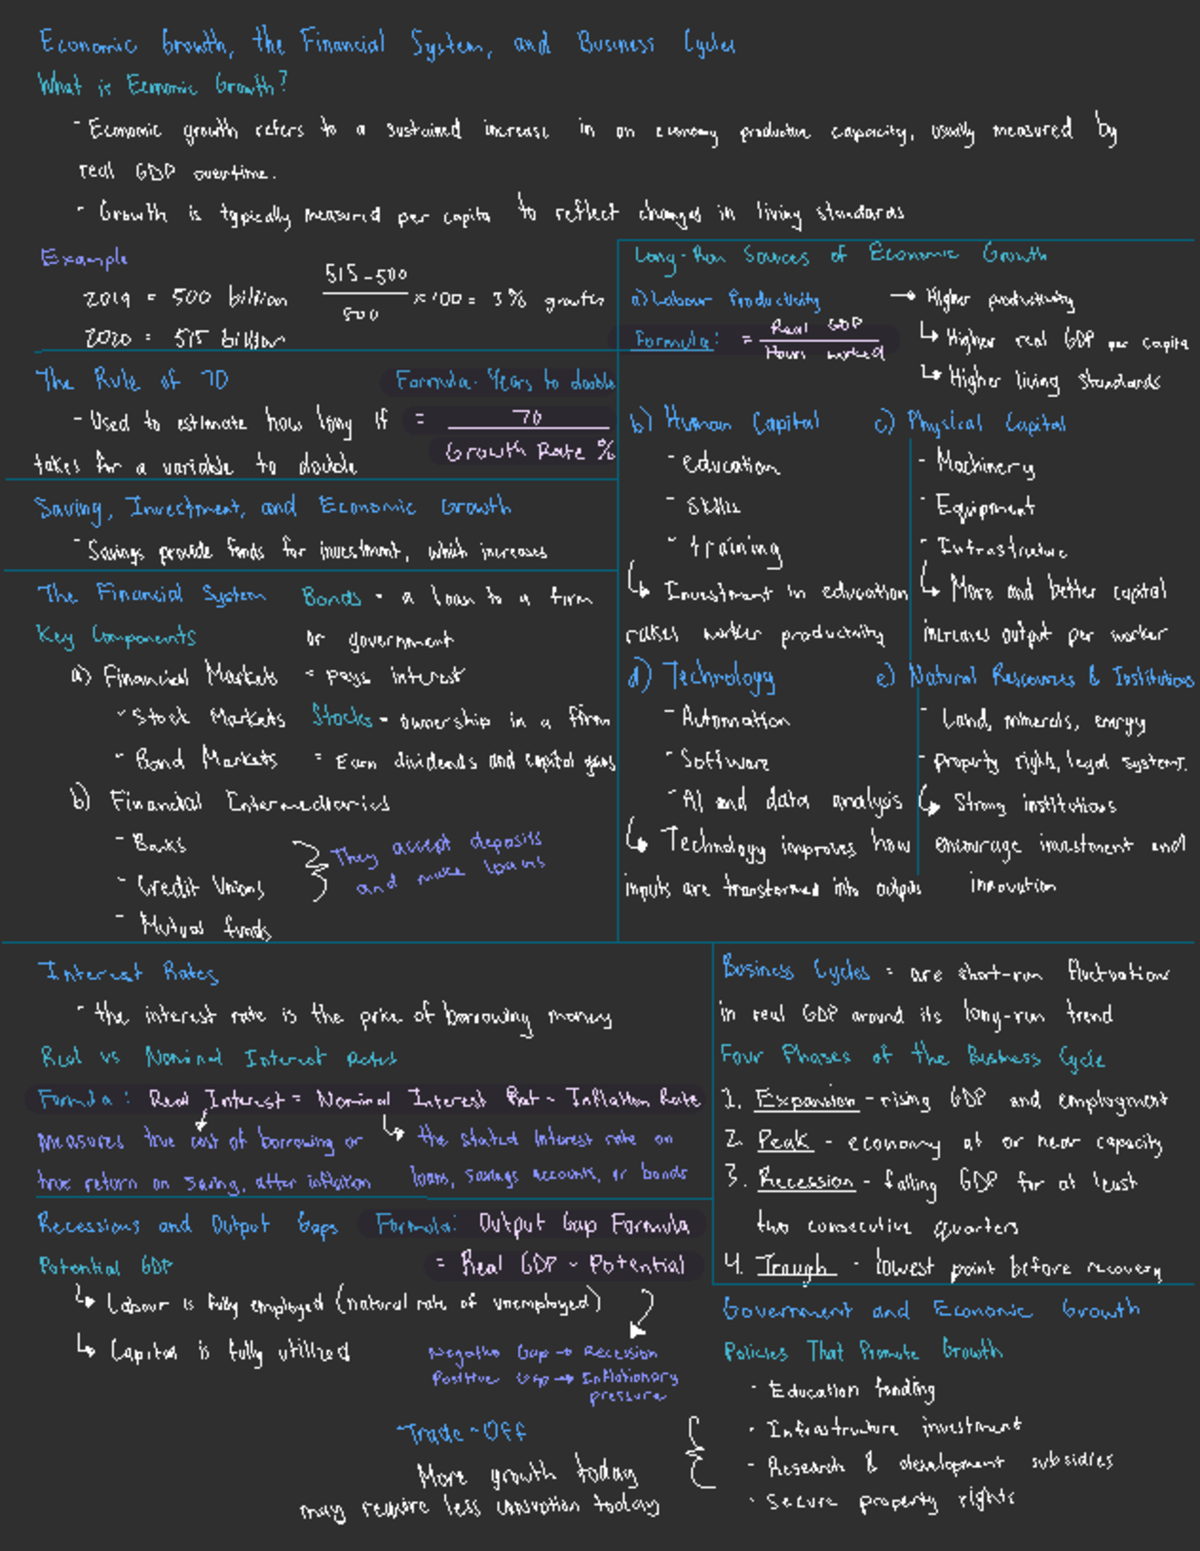 Economic Growth, the Financial System, and Business Cycles
What is Economic Growth?
- Economic growth refers to a sustained increase in an economy productive capacity, usually measured by
real GDP overtime.
- Growth is typically measured per capita to reflect changes in living standards
Example
2019 = 500 billion
2020 = 515 billion
515-500
500
×100 = 3% growth
The Rule of 70
- Used to estimate how long it
takes for a variable to double
Formula: Years to double
= 70
Growth Rate %
Saving, Investment, and Economic Growth
- Savings provide funds for investment, which increases
The Financial System
Key Components
a) Financial Markets
- Stock Markets
- Bond Markets
b) Financial Intermediaries
- Banks
- Credit Unions
- Mutual funds
They accept deposits
and make loans
Bonds - a loan to a firm
or government
= pays interest
Stocks - ownership in a firm
= Earn dividends and capital gains
Long-Run Sources of Economic Growth
a) Labour Productivity
Formula: = Real GDP
Hours worked
→ Higher productivity
↳ Higher real GDP per capita
↳ Higher living standards
b) Human Capital
- education
- skills
- training
↳ Investment in education
raises worker productivity
c) Physical Capital
- Machinery
- Equipment
- Infrastructure
↳ More and better capital
increases output per worker
d) Technology
- Automation
- Software
- AI and data analysis
↳ Technology improves how
inputs are transformed into output
e) Natural Resources & Institutions
- Land, minerals, energy
- property rights, legal systems.
↳ Strong institutions
encourage investment and
innovation
Interest Rates
- the interest rate is the price of borrowing money
Real vs Nominal Interest Rates
Formula: Real Interest = Nominal Interest Rat - Inflation Rate
measures true cost of borrowing or
true return on saving, after inflation
↳ the stated interest rate on
loans, savings accounts, or bonds
Business Cycles = are short-run fluctuations
in real GDP around its long-run trend
Four Phases of the Business Cycle
1. Expansion - rising GDP and employment
2. Peak - economy at or near capacity
3. Recession - falling GDP for at least
two consecutive quarters
4. Trough - lowest point before recovery
Recessions and Output Gaps
Formula: Output Gap Formula
= Real GDP - Potential
Potential GDP
↳ Labour is fully employed (natural rate of unemployed)
↳ Capital is fully utilized
Negative Gap → Recession
Positive Gap → Inflationary
pressure
Government and Economic Growth
Policies That Promote Growth
- Education funding
- Infrastructure investment
- Research & development subsidies
- Secure property rights
Trade-Off
More growth today
may require less today